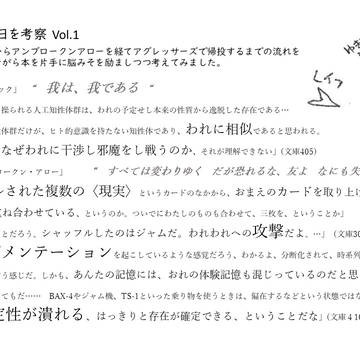 日を考察 Vol.1
からアンブロークンアローを経てアグレッサーズで帰投するまでの流れを
がら本を片手に脳みそを励ましつつ考えてみました。
レイフ
ック」 “ 我は、我である “
操られる人工知性体群は、われの予定せし本来の性質から逸脱した存在である…
体群だけが、ヒト的意識を持たない知性体であり、われに相似であると思われる。
なぜわれに干渉し邪魔をし戦うのか、それが理解できない」(文庫405)
ロークン・アロー」 “ すべては変わりゆく だが恐れるな、友よ なにも失
ルされた複数の〈現実〉というカードのなかから、おまえのカードを取り上げ
重ね合わせている、というのか。ついでにわたしのものも合わせて、三枚を、ということか」
とだろう。シャッフルしたのはジャムだ。われわれへの攻撃だよ。…」(文庫30
グメンテーションを起こしているような感覚だろう、わかるよ、分断化されて、時系列
う感じだ。しかも、あんたの記憶には、おれの体験記憶も混じっているのだと思
てもだ…… BAX-4やジャム機、TS-1といった乗り物を使うときは、偏在するなどという状態ではな
定性が潰れる、はっきりと存在が確定できる、ということだな」(文庫410